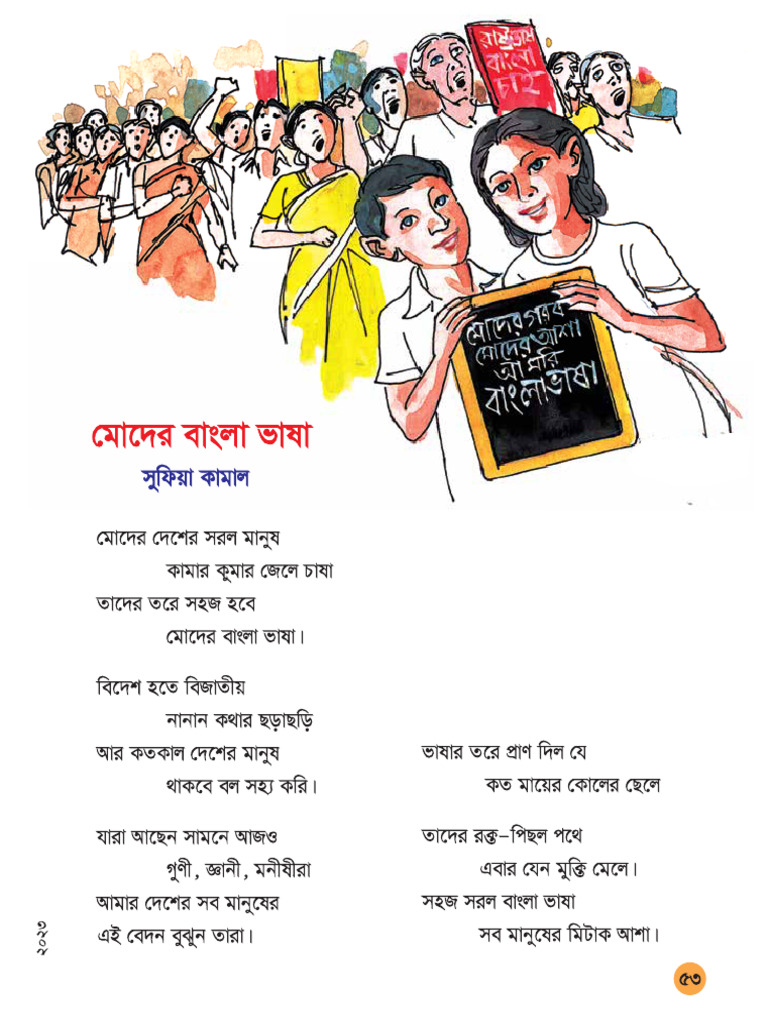 রাষ্ট্রভাষা
বাংলা
চাই
মোদের গরব
মোদের আশা
আ মরি
বাংলা ভাষা
মোদের বাংলা ভাষা
সুফিয়া কামাল
মোদের দেশের সরল মানুষ
কামার কুমার জেলে চাষা
তাদের তরে সহজ হবে
মোদের বাংলা ভাষা।
বিদেশ হতে বিজাতীয়
নানান কথার ছড়াছড়ি
আর কতকাল দেশের মানুষ
থাকবে বল সহ্য করি।
যারা আছেন সামনে আজও
গুণী, জ্ঞানী, মনীষীরা
আমার দেশের সব মানুষের
এই বেদন বুঝুন তারা।
ভাষার তরে প্রাণ দিল যে
কত মায়ের কোলের ছেলে
তাদের রক্ত-পিছল পথে
এবার যেন মুক্তি মেলে।
সহজ সরল বাংলা ভাষা
সব মানুষের মিটাক আশা।
২০২৩
৫৩